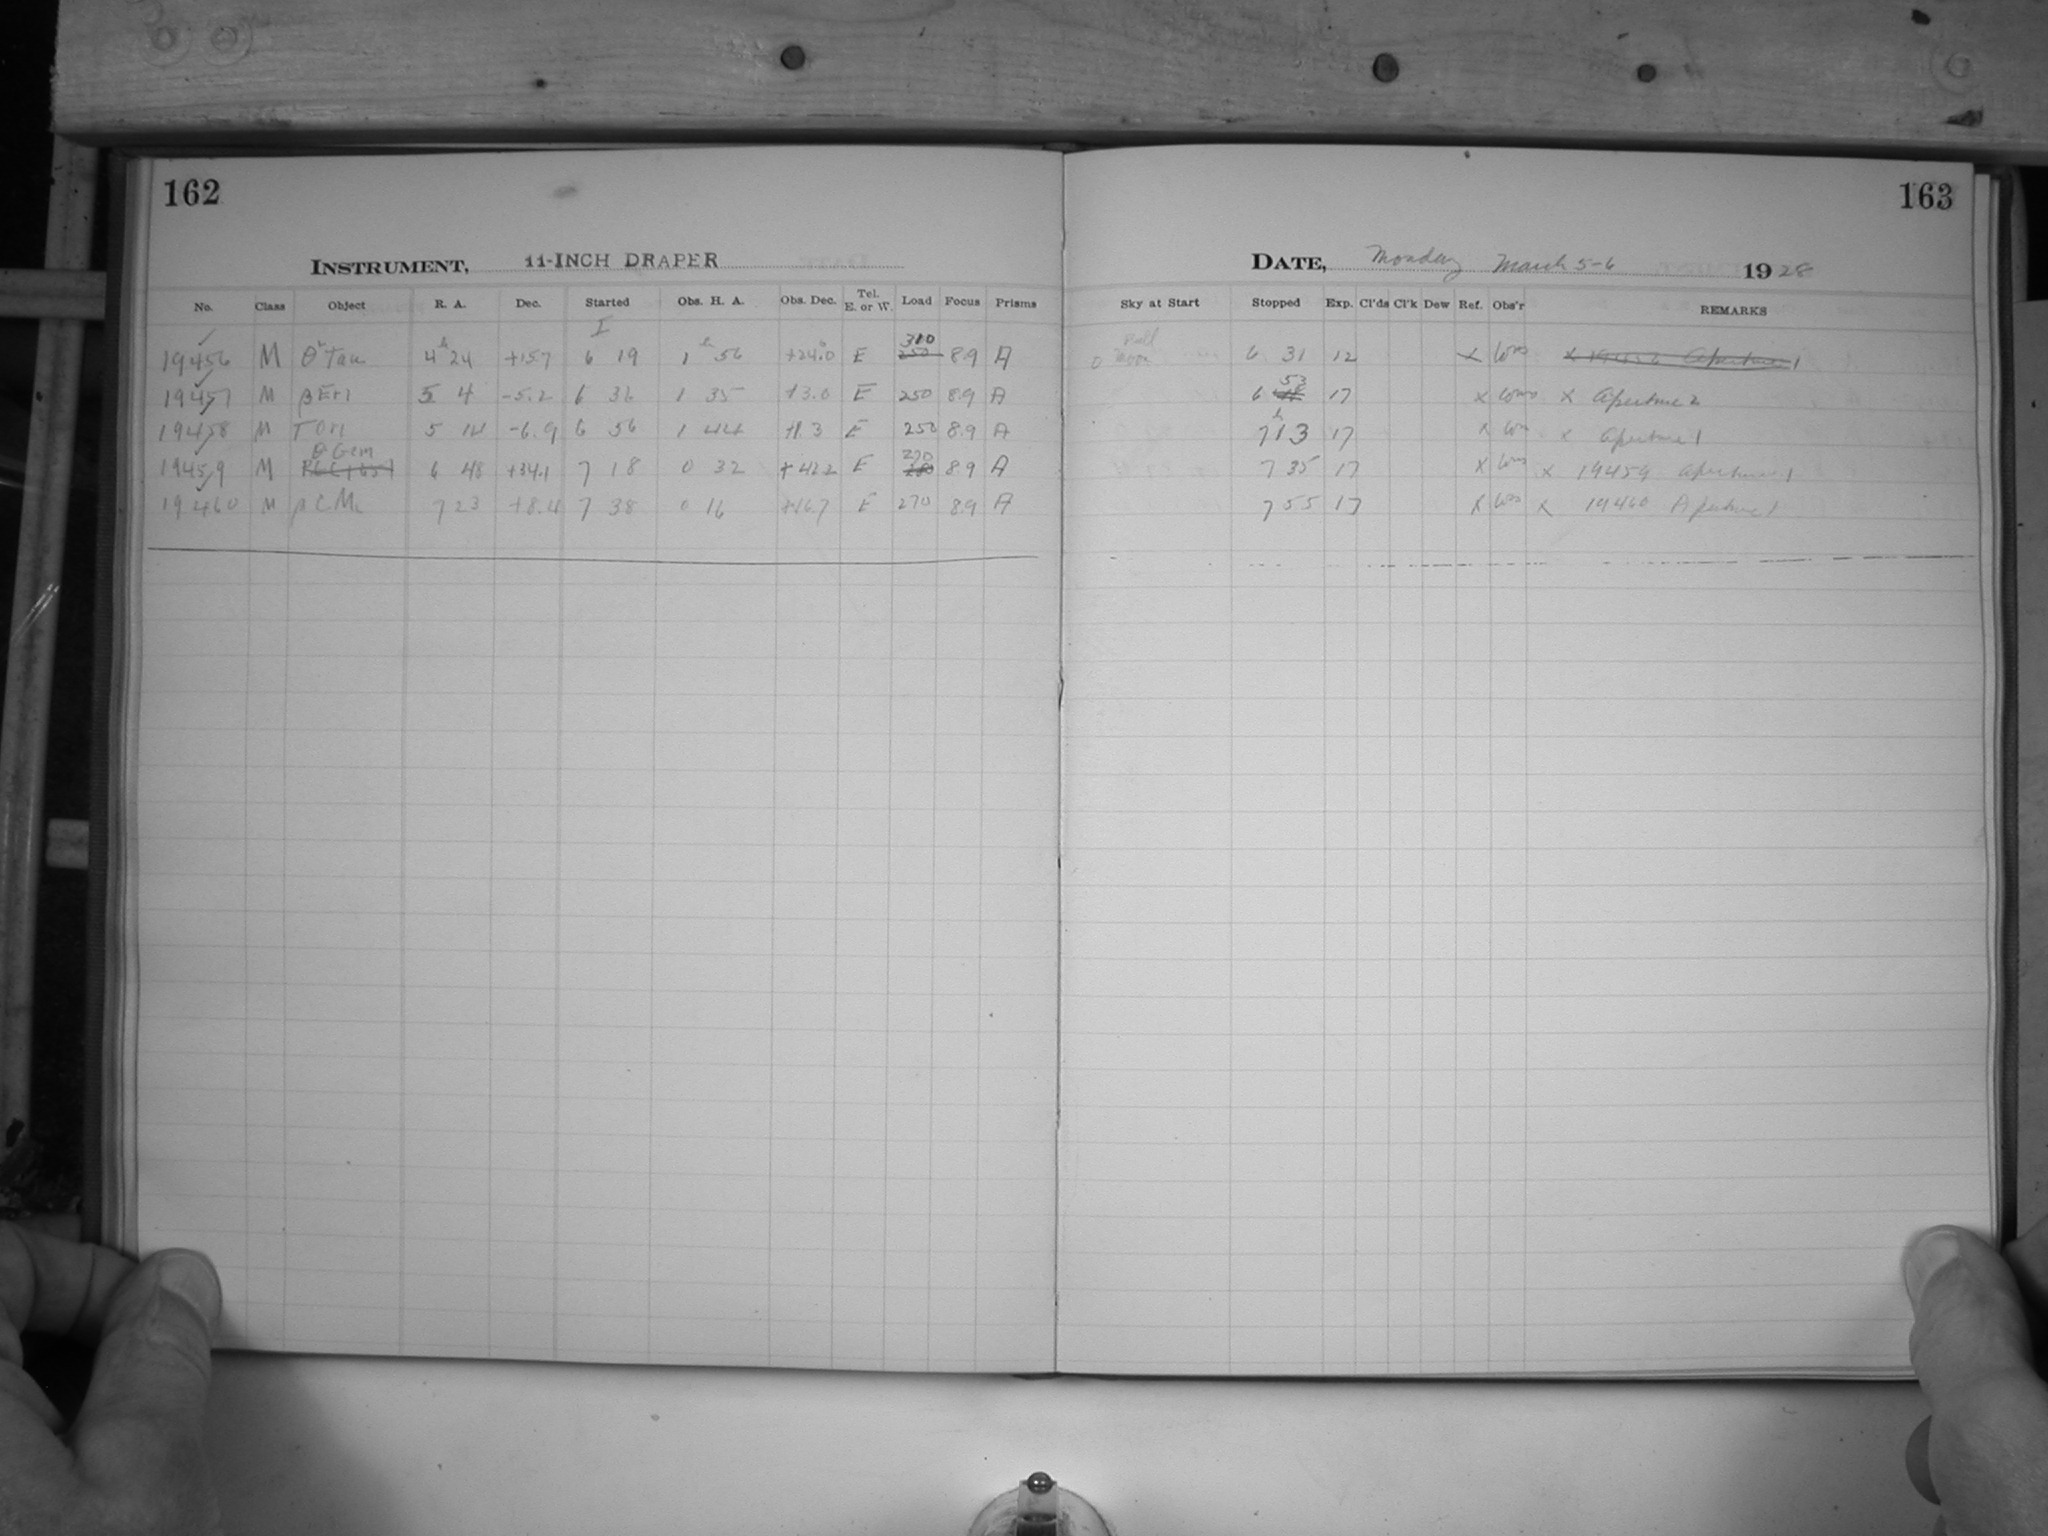 162
INSTRUMENT, 11-INCH DRAPER
No. Class Object R. A. Dec. Started Obs. H. A. Obs. Dec. Tel. E. or W. Load Focus Prisms
I
19456 M θ² Tau 4h 24 +15.7 6 19 1h 56 +24.0 E 310 250 8.9 A
19457 M β Eri 5 4 -5.2 6 36 1 35 +3.0 E 250 8.9 A
19458 M τ Ori 5 14 -6.9 6 56 1 44 +1.3 E 250 8.9 A
19459 M θ Gem 6 48 +34.1 7 18 0 32 +42.2 E 270 8.9 A
19460 M β C Mi 7 23 +8.4 7 38 0 16 +16.7 E 270 8.9 A
163
DATE, Monday March 5-6 1928
Sky at Start Stopped Exp. Cl'ds Cl'k Dew Ref. Obs'r REMARKS
0 Full Moon 6 31 12 x x 19456 Aperture 1
6 53 17 x x Aperture 2
7h 13 17 x x Aperture 1
7 35 17 x x 19459 Aperture 1
7 55 17 x x 19460 Aperture 1